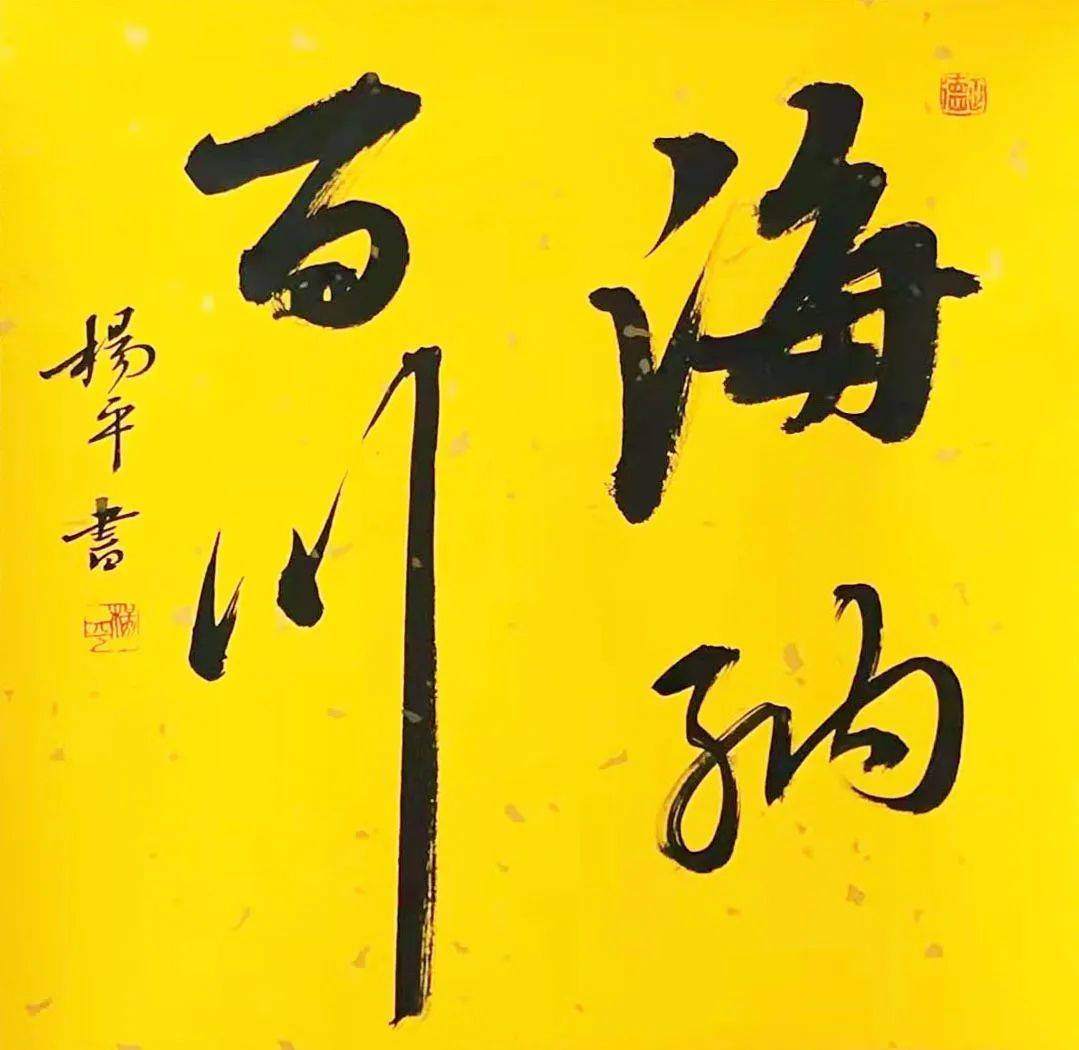 海纳
百川
楊平書